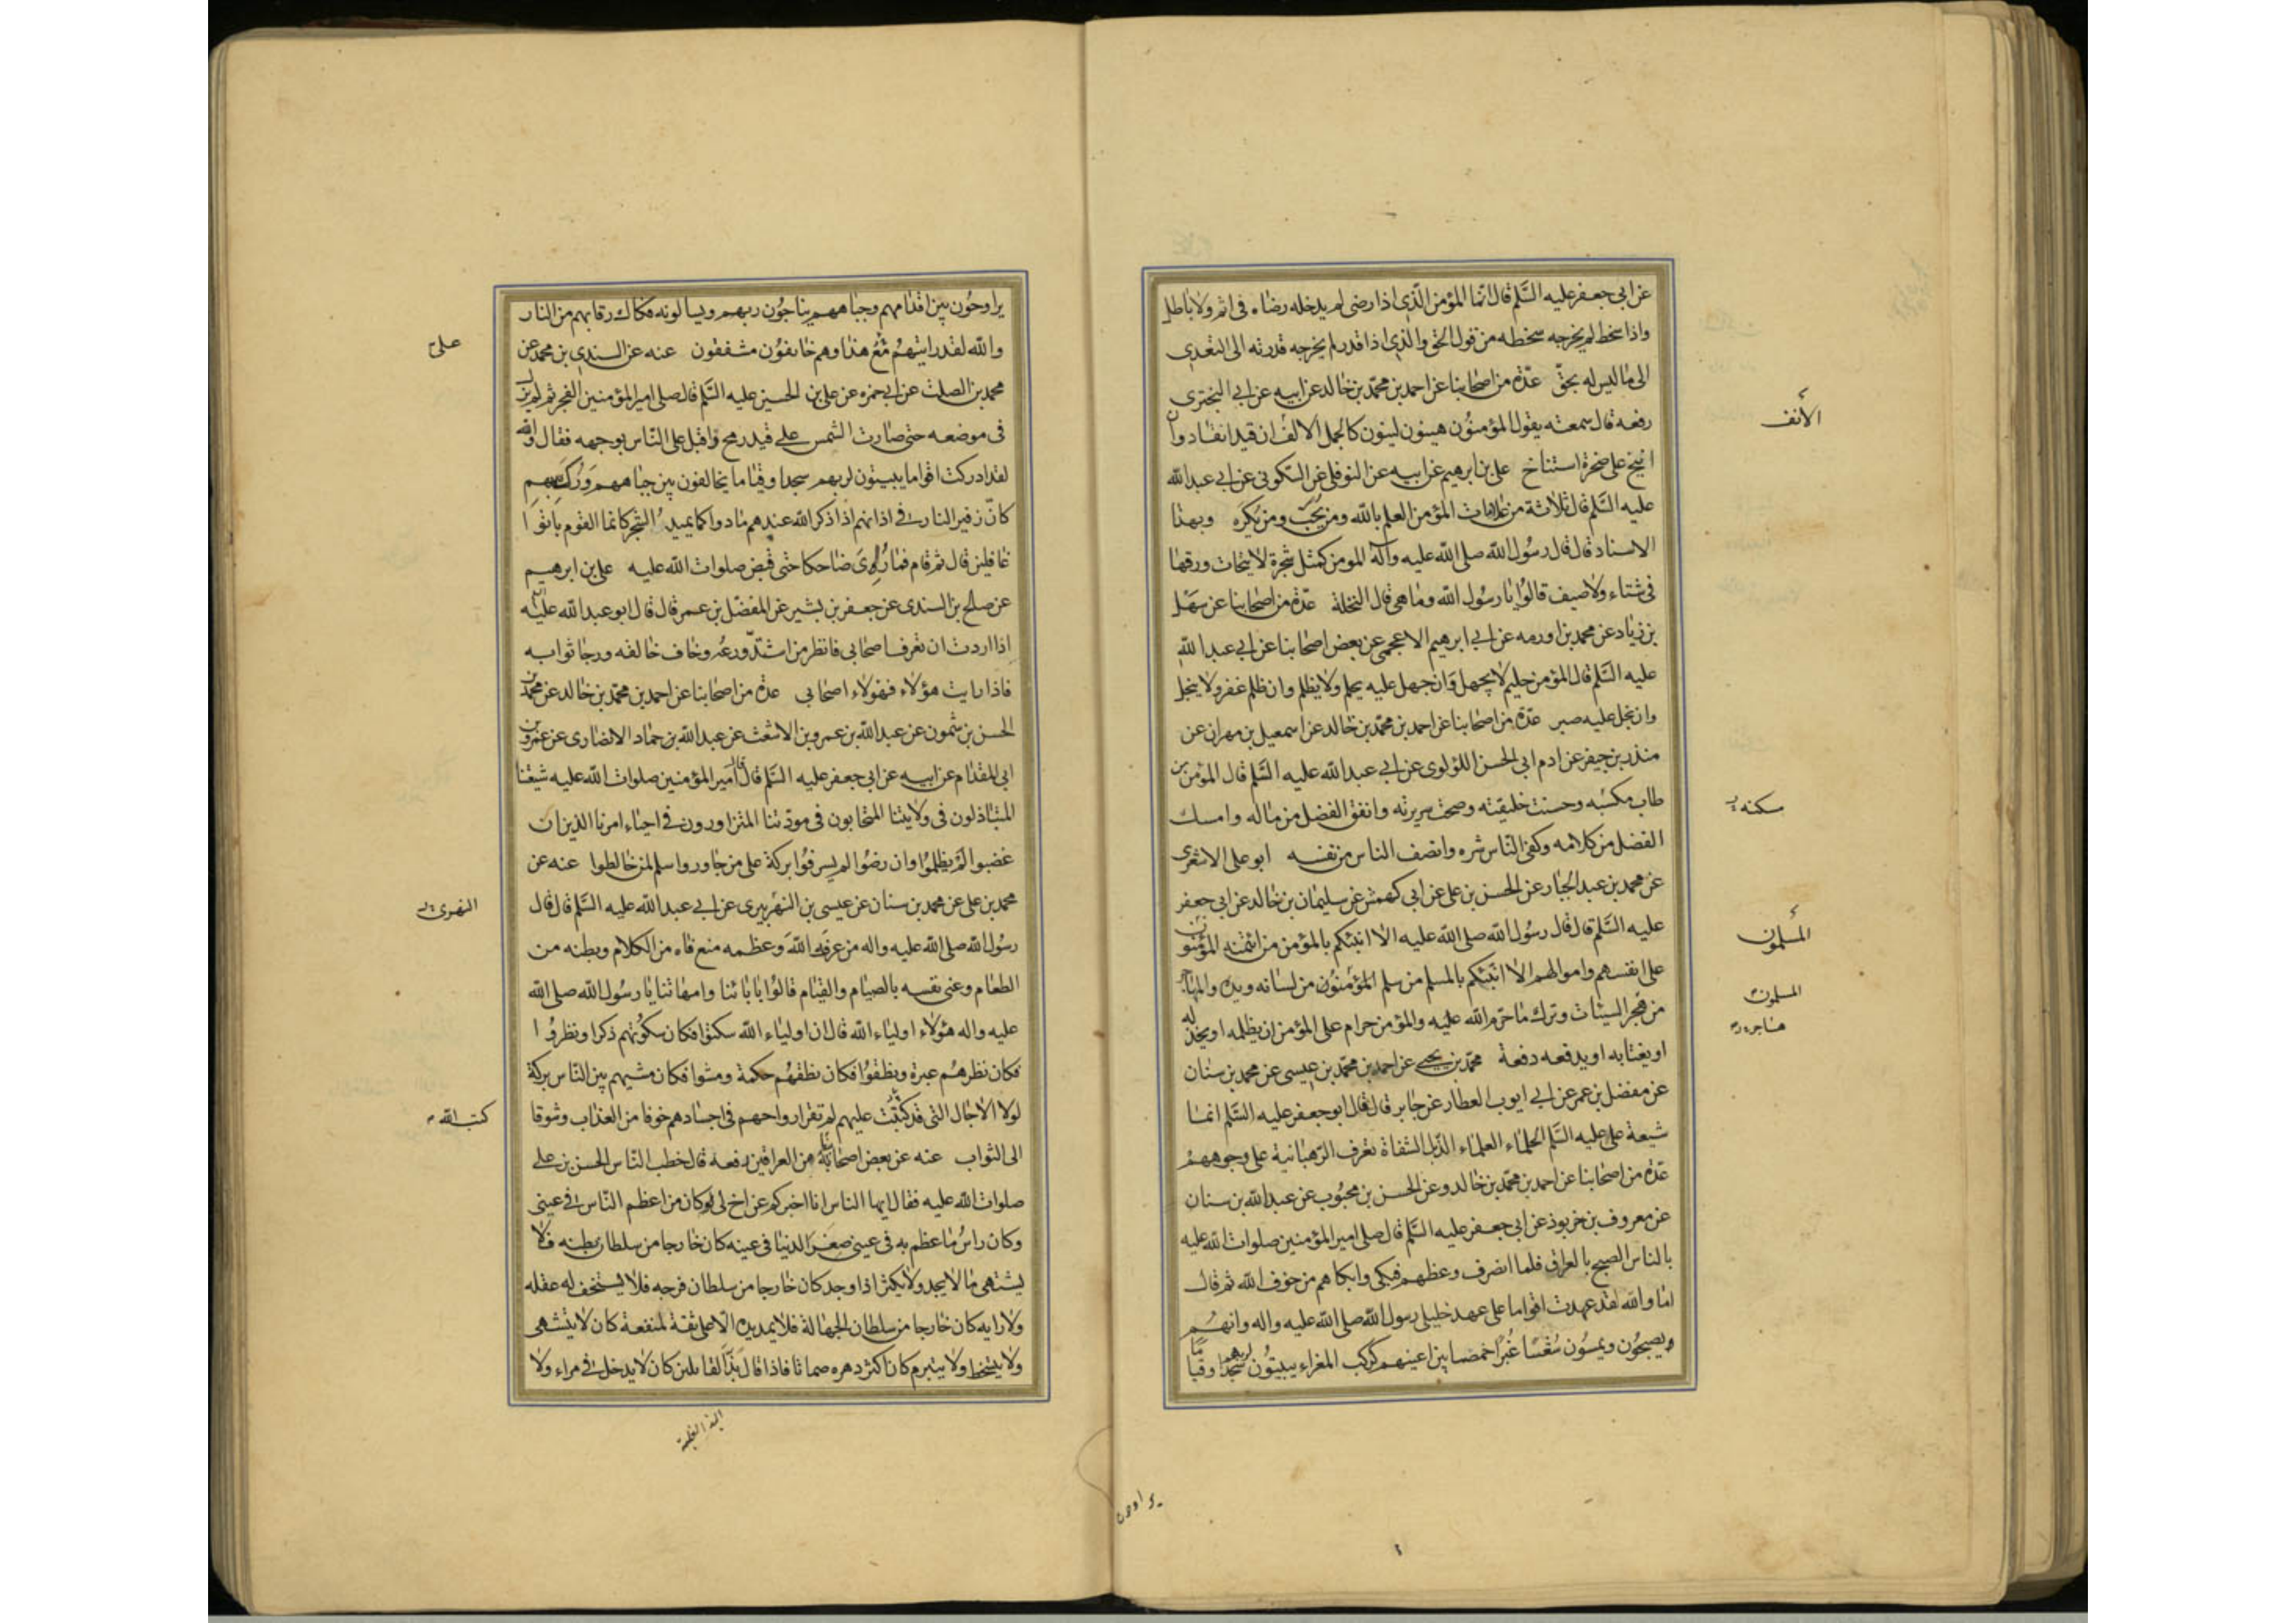 عن ابى جعفر عليه السَّلم قال انّما المؤمن الّذى اذا رضى لم يدخله رضاه فى اثم ولا باطل
واذا سخط لم يخرجه سخطه من قول الحق والّذى اذا قدر لم يخرجه قدرته الى التعدى
الى ما ليس له بحقّ عدّة من اصحابنا عن احمد بن محمّد بن خالد عن ابيه عن ابى البخترى
رفعه قال سمعته يقول المؤمنون هينون لينون كالجمل الالف ان قيد انقاد وان
انيخ على صخرة استناخ على بن ابرهيم عن ابيه عن النوفلى عن السكونى عن ابى عبد الله
عليه السَّلم قال ثلاثة من علامات المؤمن العلم بالله ومن يحبّ ومن يكره وبهذا
الاسناد قال قال رسول الله صلى الله عليه وآله المومن كمثل شجرة لا يتحات ورقها
فى شتاء ولا صيف قالوا يا رسول الله وما هى قال النخلة عدّة من اصحابنا عن سهل
بن زياد عن محمد بن اورمه عن ابى ابرهيم الاعجمى عن بعض اصحابنا عن ابى عبد الله
عليه السَّلم قال المؤمن حليم لا يجهل وان جهل عليه يحلم ولا يظلم وان ظلم غفر ولا يبخل
وان بخل عليه صبر عدّة من اصحابنا عن احمد بن محمّد بن خالد عن اسمعيل بن مهران عن
منذر بن جيفر عن ادم ابى الحسن اللؤلوى عن ابى عبد الله عليه السَّلم قال المؤمن من
طاب مكسبه وحسنت خليقته وصحت سريرته وانفق الفضل من ماله وامسك
الفضل من كلامه وكفى النّاس شره وانصف الناس من نفسه ابو على الاشعرى
عن محمد بن عبد الجبار عن الحسن بن على عن ابى كهمش عن سليمان بن خالد عن ابى جعفر
عليه السَّلم قال قال رسول الله صلى الله عليه الا انبئكم بالمؤمن من ائتمنه المؤمنون
على انفسهم واموالهم الا انبئكم بالمسلم من سلم المؤمنون من لسانه ويده والمهاجر
من هجر السيئات وترك ما حرّم الله عليه والمؤمن حرام على المؤمن ان يظلمه او يخذله
او يغتابه او يدفعه دفعة محمّد بن يحيى عن احمد بن محمّد بن عيسى عن محمد بن سنان
عن مفضل بن عمر عن ابى ايوب العطار عن جابر قال قال ابو جعفر عليه السَّلم انما
شيعة على عليه السَّلم الحلماء العلماء الذبل الشفاة تعرف الرّهبانية على وجوههم
عدّة من اصحابنا عن احمد بن محمّد بن خالد وعن الحسن بن محبوب عن عبد الله بن سنان
عن معروف بن خربوذ عن ابى جعفر عليه السَّلم قال صلى امير المؤمنين صلوات الله عليه
بالناس الصبح بالعراق فلما انصرف وعظهم فبكى وابكاهم من خوف الله ثم قال
اما والله لقد عهدت اقواما على عهد خليلى رسول الله صلى الله عليه واله وانهم
ويصبحون ويمسون شعثا غبرا خمصا بين اعينهم كركب المعزاء يبيتون لربهم سجدا وقياما
الأنف
سكنه
المسلمون
المسلمون
يراوحون
يراوحون بين اقدامهم وجباههم يناجون ربهم ويسالونه فكاك رقابهم من النار
والله لقد رايتهم مع هذا وهم خائفون مشفقون عنه عن السندى بن محمد عن
محمد بن الصلت عن ابى حمزه عن على بن الحسين عليه السَّلم قال صلى امير المؤمنين الفجر ثم لم يزل
فى موضعه حتى صارت الشمس على قيد رمح واقبل على النّاس بوجهه فقال والله
لقد ادركت اقواما يبيتون لربهم سجدا وقياما يخالفون بين جباههم وركبهم
كانّ زفير النار فى اذانهم اذا ذكر الله عندهم مادوا كما يميد الشجر كانما القوم باتوا
غافلين قال ثم قام فما رؤى ضاحكا حتى قبض صلوات الله عليه على بن ابرهيم
عن صالح بن السندى عن جعفر بن بشير عن المفضّل بن عمر قال قال ابو عبد الله عليه
اذا اردت ان تعرف اصحابى فانظر من اشتدّ ورعه وخاف خالقه ورجا ثوابه
فاذا رايت هؤلاء فهولاء اصحابى عدة من اصحابنا عن احمد بن محمّد بن خالد عن محمد بن
الحسن بن شمون عن عبد الله بن عمرو بن الاشعث عن عبد الله بن حماد الانصارى عن عمرو بن
ابى المقدام عن ابيه عن ابى جعفر عليه السَّلم قال قال امير المؤمنين صلوات الله عليه شيعتنا
المتباذلون فى ولايتنا المتحابون فى مودّتنا المتزاورون فى احياء امرنا الذين ان
غضبوا لم يظلموا وان رضوا لم يسرفوا بركة على من جاوروا سلم لمن خالطوا عنه عن
محمد بن على عن محمد بن سنان عن عيسى بن النهربيرى عن ابى عبد الله عليه السَّلم قال قال
رسول الله صلى الله عليه واله من عرف الله وعظمه منع فاه من الكلام وبطنه من
الطعام وعنى نفسه بالصيام والقيام قالوا بابائنا وامهاتنا يا رسول الله صلى الله
عليه واله هؤلاء اولياء الله قال ان اولياء الله سكتوا فكان سكوتهم ذكرا ونظروا
فكان نظرهم عبرة ونطقوا فكان نطقهم حكمة ومشوا فكان مشيهم بين النّاس بركة
لولا الاجال التى قد كتبت عليهم لم تقر ارواحهم فى اجسادهم خوفا من العذاب وشوقا
الى الثواب عنه عن بعض اصحابه من العراقين رفعه قال خطب النّاس الحسن بن على
صلوات الله عليه فقال ايها الناس انا اخبركم عن اخ لى كان من اعظم النّاس فى عينى
وكان راس ما عظم به فى عينى صغر الدنيا فى عينه كان خارجا من سلطان بطنه فلا
يشتهى ما لا يجد ولا يكثر اذا وجد كان خارجا من سلطان فرجه فلا يستخف له عقله
ولا رايه كان خارجا من سلطان الجهالة فلا يمد يده الّا على ثقة لمنفعة كان لا يتشهى
ولا يتسخط ولا يتبرم كان اكثر دهره صماتا فاذا قال بذّ القائلين كان لا يدخل فى مراء ولا
على
النهرى
كتب الله